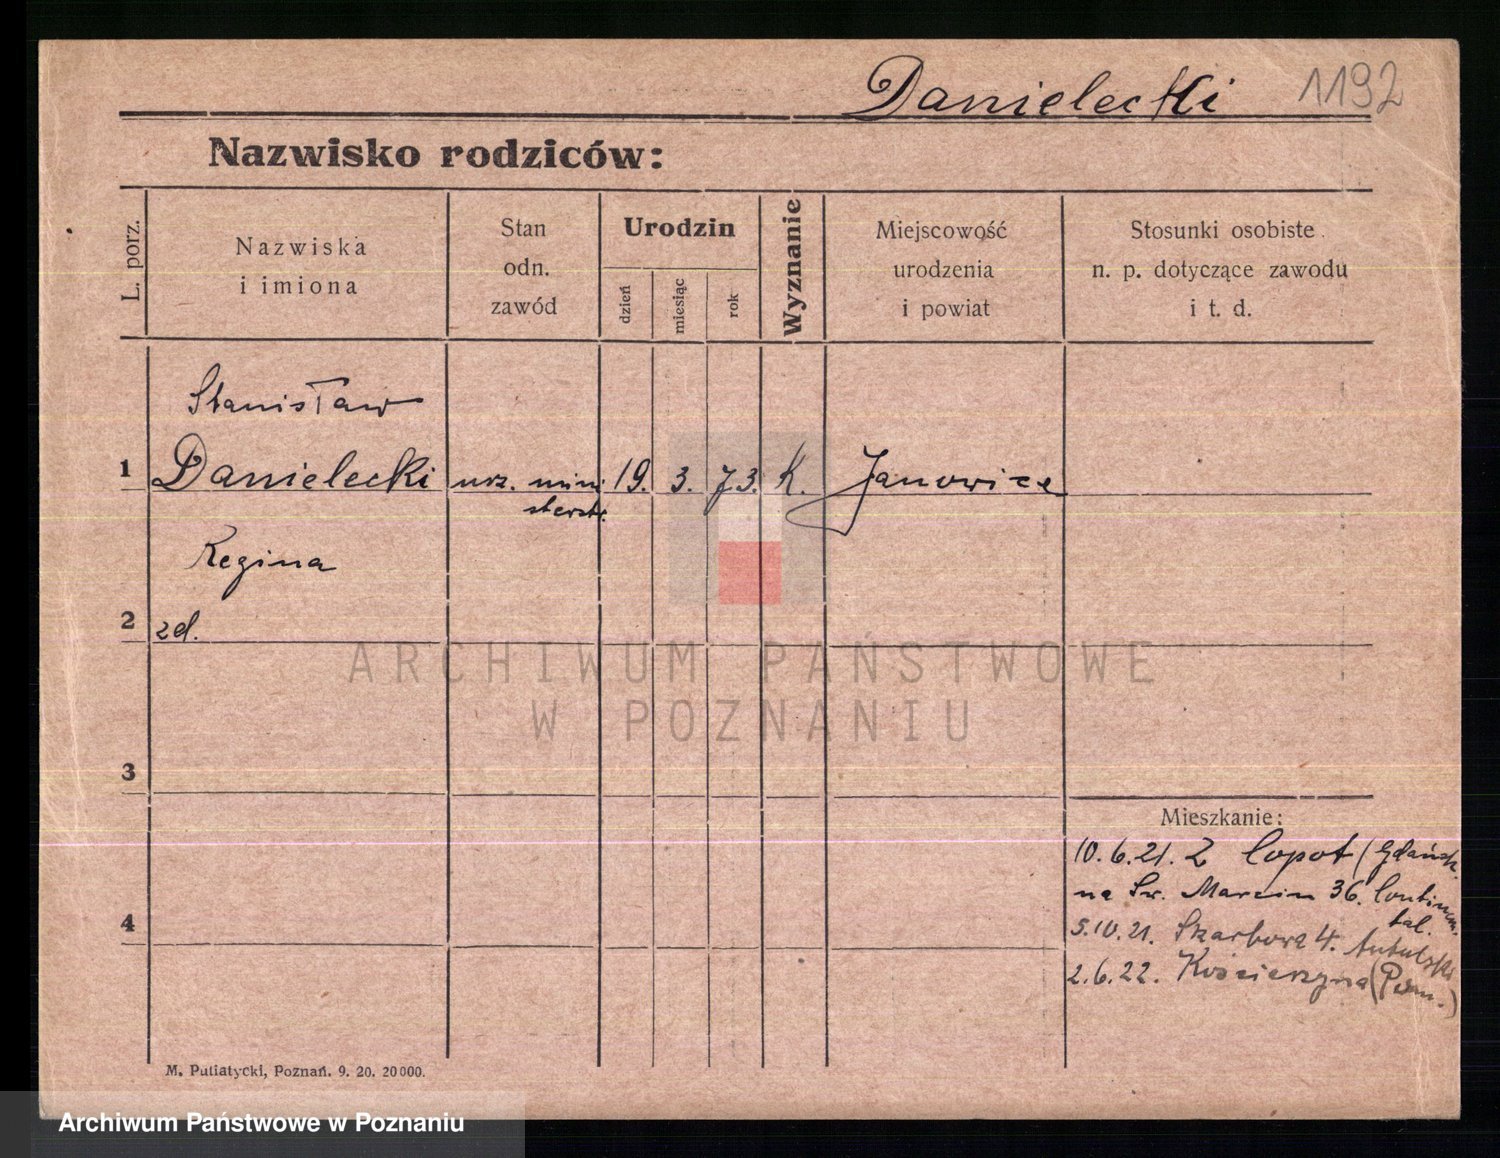 Danielecki 1192
Nazwisko rodziców:
L. porz.
Nazwiska
i imiona
Stan
odn.
zawód
Urodzin
dzień
miesiąc
rok
Wyznanie
Miejscowość
urodzenia
i powiat
Stosunki osobiste
n. p. dotyczące zawodu
i t. d.
Stanisław
1 Danielecki urz. mini 19. 3. 73. K. Janowice
sterstr.
Regina
2 zd.
3
4
Mieszkanie:
10. 6. 21. Z Copot (Gdańsk.
na Św. Marcin 36. Continen.
tal.
5. 10. 21. Skarbowa 4.
2. 6. 22. Kościerzyna (Pom.)
M. Putiatycki, Poznań. 9. 20. 20000.
ARCHIWUM PAŃSTWOWE
W POZNANIU
Archiwum Państwowe w Poznaniu